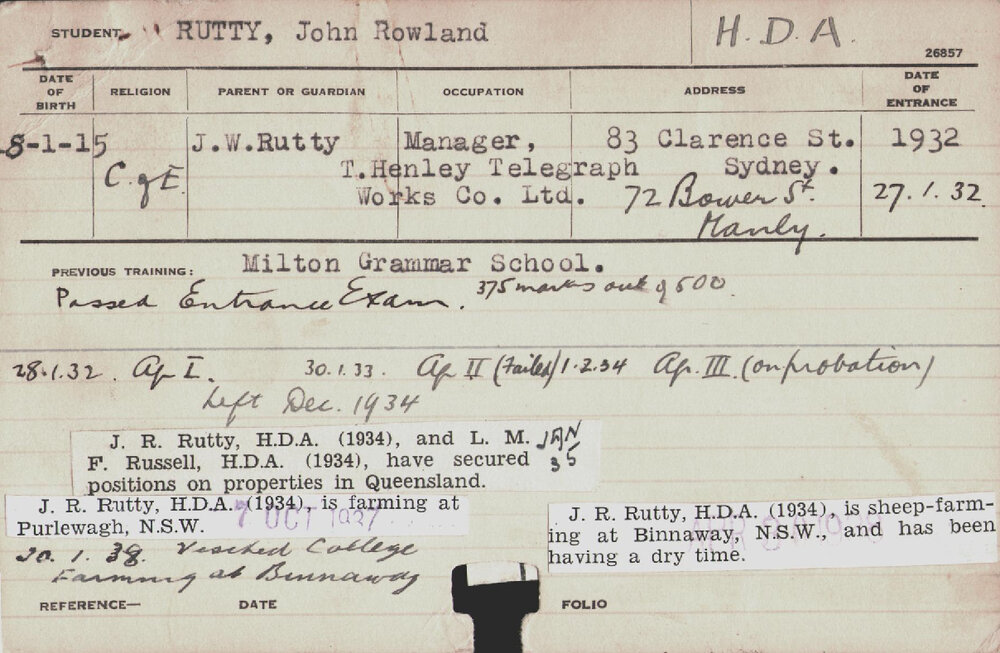 STUDENT RUTTY, John Rowland H.D.A.
26857
DATE OF BIRTH RELIGION PARENT OR GUARDIAN OCCUPATION ADDRESS DATE OF ENTRANCE
8-1-15 J.W.Rutty Manager, 83 Clarence St. 1932
C. of E. T.Henley Telegraph Sydney.
Works Co. Ltd. 72 Bower St. 27.1.32.
Manly.
PREVIOUS TRAINING: Milton Grammar School.
Passed Entrance Exam. 375 marks out of 500.
28.1.32. Ag I. 30.1.33. Ag II (Failed) 1.2.34 Ag. III. (on probation)
Left Dec. 1934
J. R. Rutty, H.D.A. (1934), and L. M. JAN
F. Russell, H.D.A. (1934), have secured 35
positions on properties in Queensland.
J. R. Rutty, H.D.A. (1934), is farming at
Purlewagh, N.S.W. 7 OCT 1937
J. R. Rutty, H.D.A. (1934), is sheep-farm-
ing at Binnaway, N.S.W., and has been
having a dry time.
20.1.38. Visited College
Farming at Binnaway
REFERENCE— DATE FOLIO